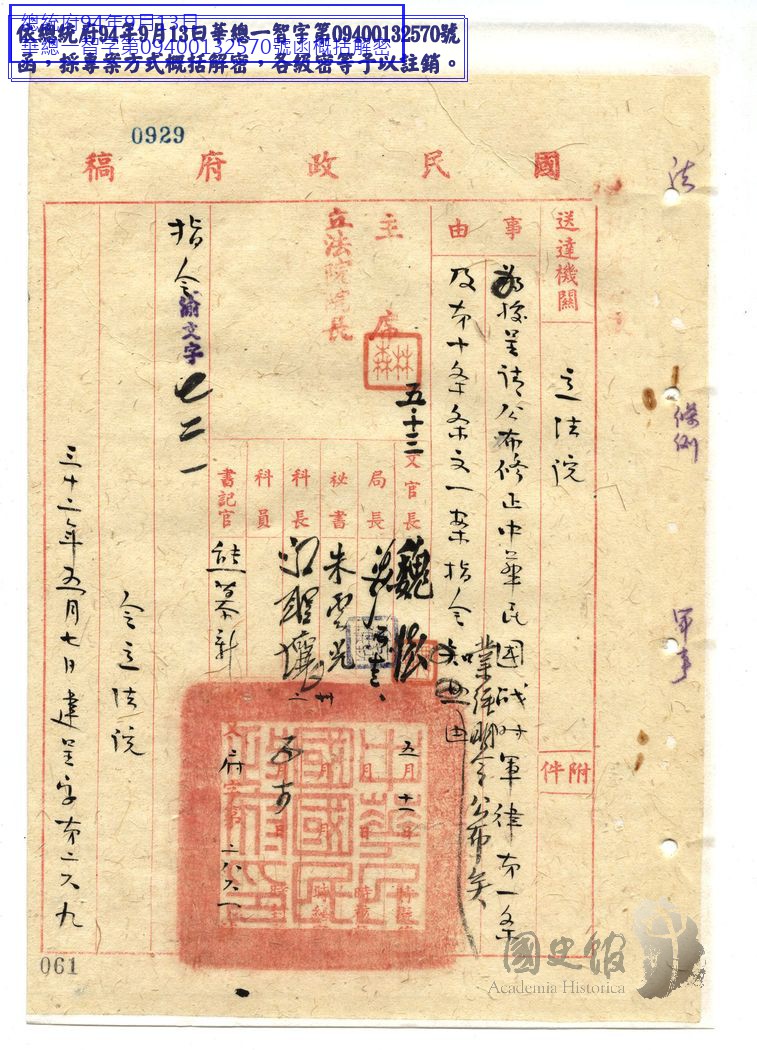 總統府94年9月13日
華總一智字第09400132570號函概括解密
依總統府94年9月13日華總一智字第09400132570號
函，採專案方式概括解密，各級密等予以註銷。
0929
國民政府稿
法
條例
軍事
送達機關
立法院
附件
事由
為據呈請公布修正中華民國戰時軍律第一條
及第十條條文一案指令
業經明令公布矣
主席
林森
立法院院長
五·十三
文官長
魏懷
局長
祕書
朱雲光
科長
科員
書記官
熊慕新
五月十一日
月
日
府字第二八六一
中華民國國民政府印
指令
渝文字
七二一
令立法院
三十二年五月七日建呈字第二六九
061
國史館
Academia Historica